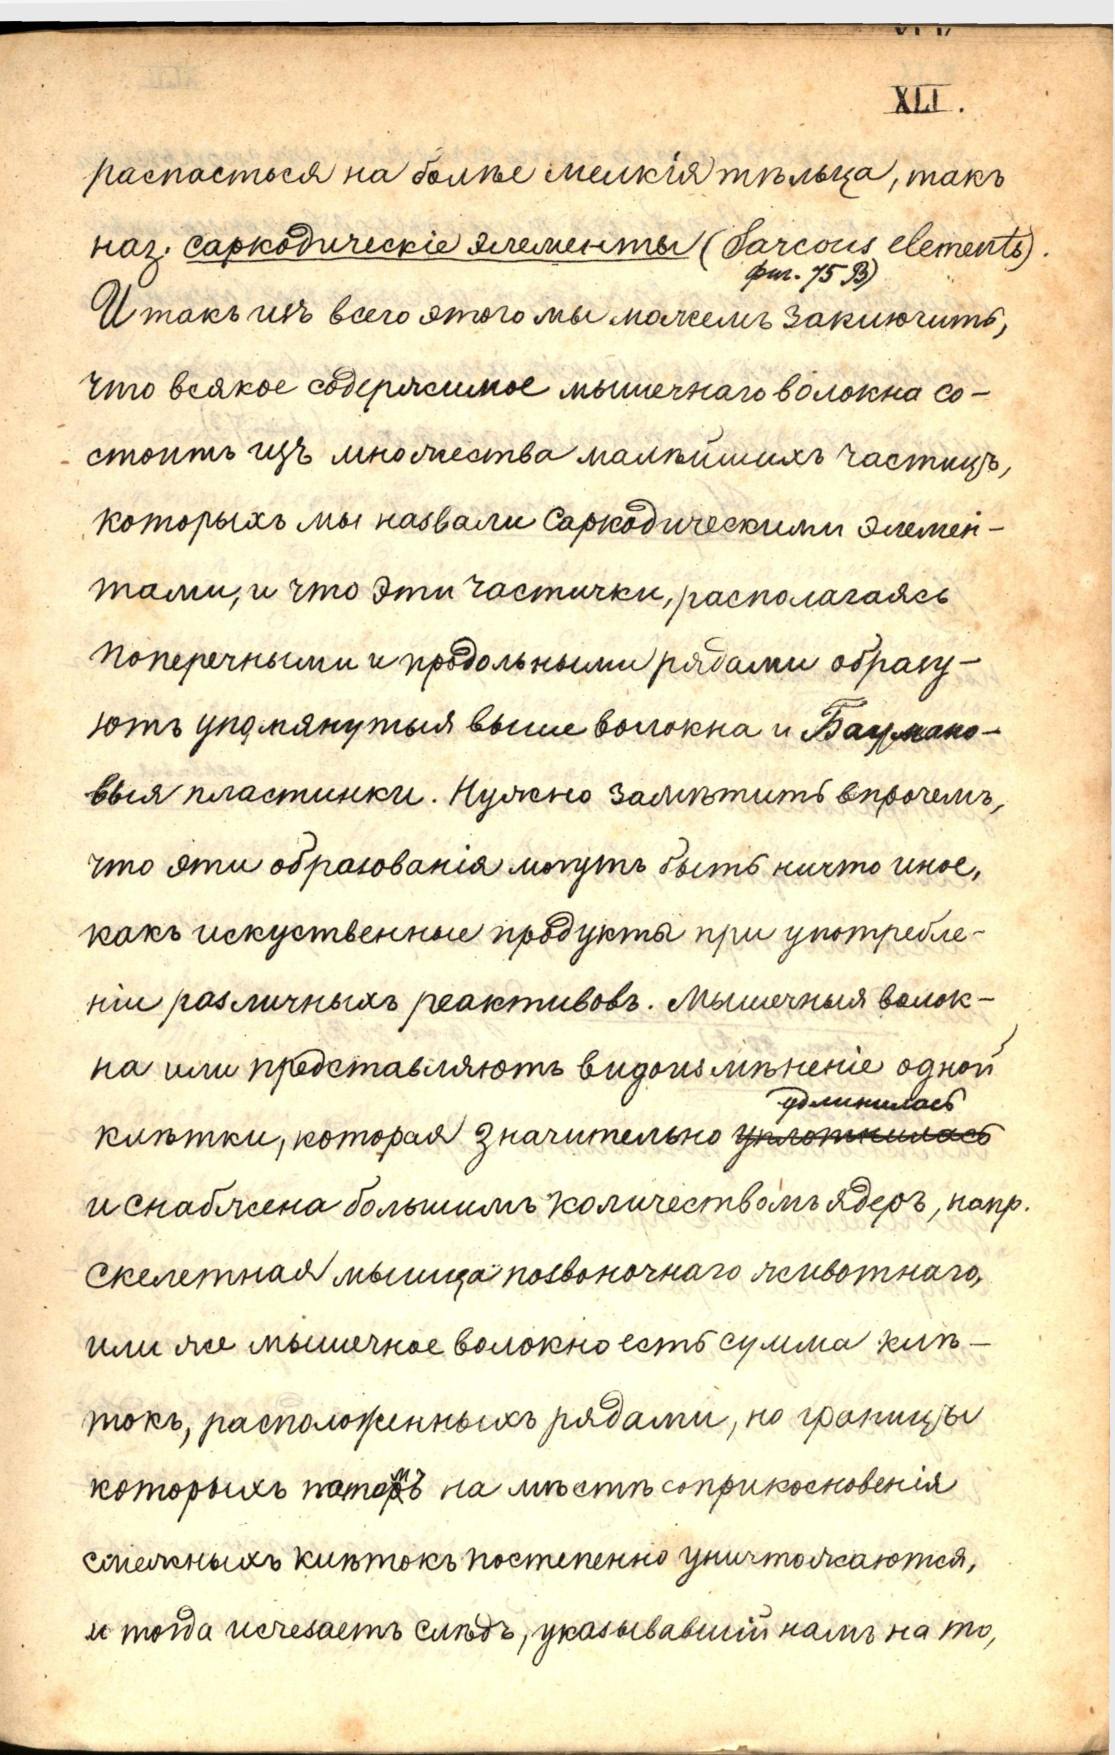 XLI.
распасться на болѣе мелкія тѣльца, такъ
наз. саркодическіе элементы (Sarcous elements).
фиг. 75 B)
И такъ изъ всего этого мы можемъ заключить,
что всякое содержимое мышечнаго волокна со-
стоитъ изъ множества малѣйшихъ частицъ,
которыхъ мы назвали саркодическими элемен-
тами, и что эти частички, располагаясь
поперечными и продольными рядами образу-
ютъ упомянутыя выше волокна и Баумано-
выя пластинки. Нужно замѣтить впрочемъ,
что эти образованія могутъ быть ничто иное,
какъ искуственные продукты при употребле-
ніи различныхъ реактивовъ. Мышечныя волок-
на или представляютъ видоизмѣненіе одной
удлинилась
клѣтки, которая значительно уплотнилась
и снабжена большимъ количествомъ ядеръ, напр.
скелетная мышца позвоночнаго животнаго,
или же мышечное волокно есть сумма клѣ-
токъ, расположенныхъ рядами, но границы
которыхъ потомъ на мѣстѣ соприкосновенія
смежныхъ клѣтокъ постепенно уничтожаются,
и тогда исчезаетъ слѣдъ, указывавшій намъ на то,